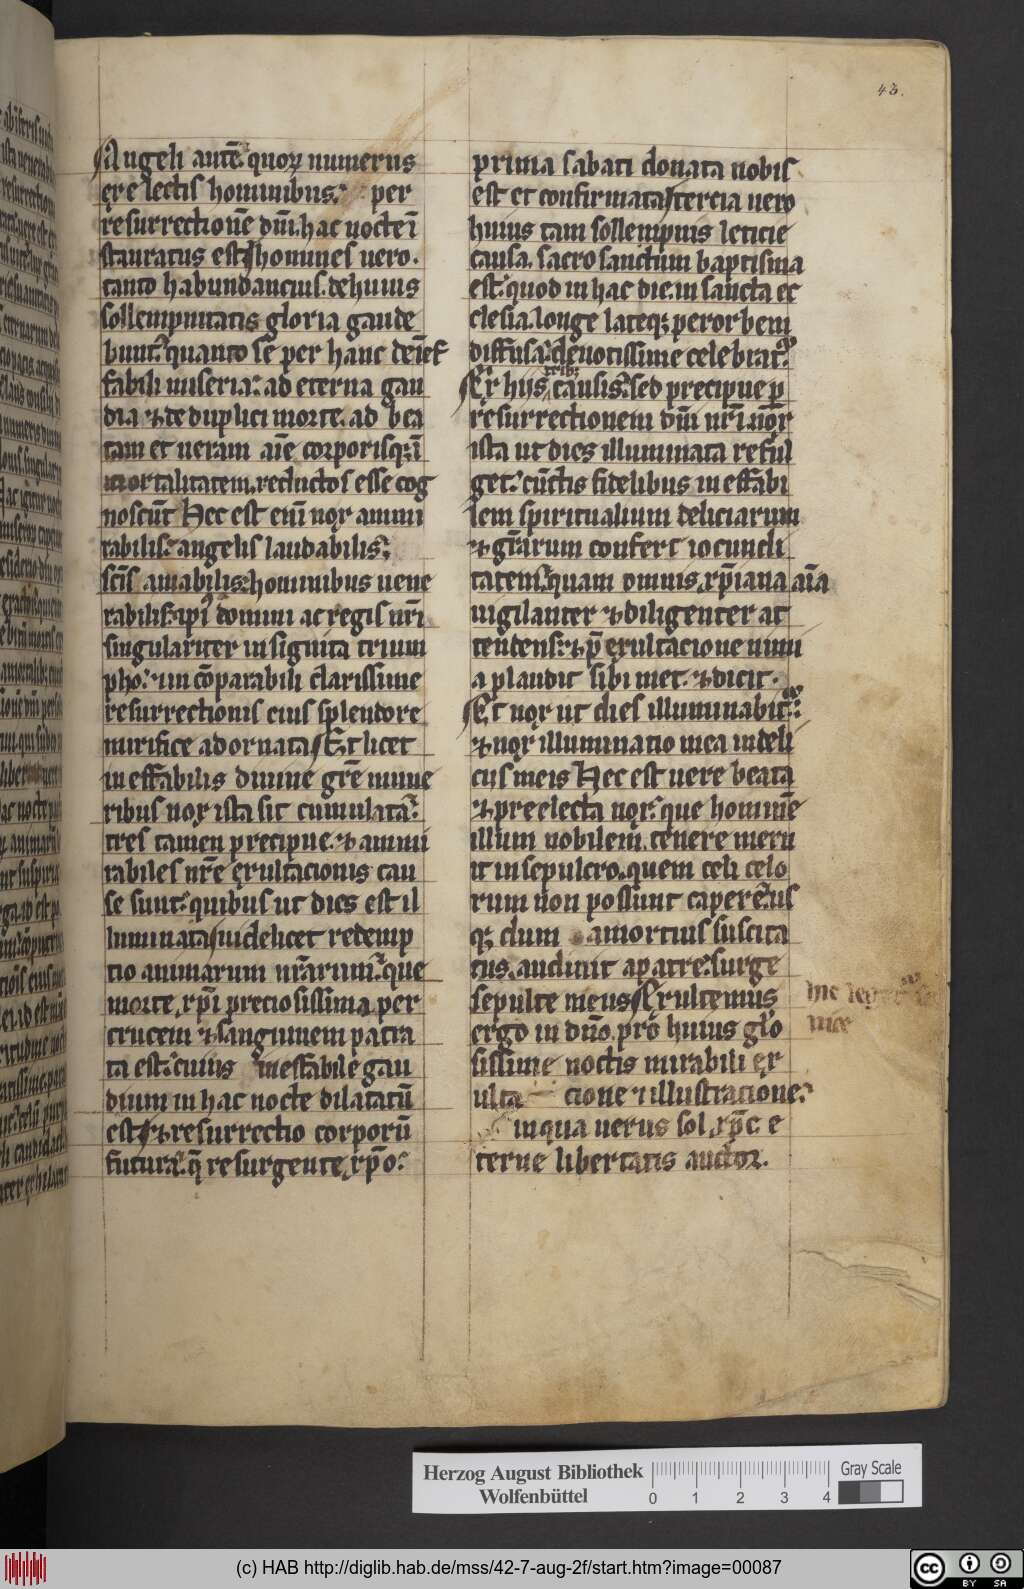 43.
Angeli autē quoꝝ numerus
ex electis hominibus. per
resurrectionē dn̄i. hac nocte ī
stauratus est homines uero.
tanto habundancius. de huius
sollempnitatis gloria gaude
bunt. quanto se per hanc de inef
fabili miseria. ad eterna gau
dia ⁊ de duplici morte. ad bea
tam et ueram aīe corporisqꝫ ī
mortalitatem. reductos esse cog
noscūt Hec est enī nox ammi
rabilis. angelis laudabilis.
scīs amabilis. hominibus uene
rabilis. ipī domini ac regis nr̄i
singulariter insignita trium
pho. incōparabili clarissime
resurrectionis eius splendore
mirifice adornata Et licet
ineffabilis diuine grē mune
ribus nox ista sit cumulata.
tres tamen precipue. ⁊ ammi
rabiles nr̄e exultacionis cau
se sunt. quibus ut dies est il
luminata uidelicet redemp
tio animarum nr̄arum. que
morte xp̄i preciosissima per
crucem ⁊ sanguinem patra
ta est. cuius ineffabile gau
dium in hac nocte dilatatū
est ⁊ resurrectio corporū
futura. q̄ resurgente xp̄o.
prima sabati donata nobis
est et confirmata tercia uero
huius tam sollempnis leticie
causa. sacrosanctum baptisma
est. quod in hac die. in sancta ec
clesia. longe lateqꝫ per orbem
diffusa. deuotissime celebrat᷑.
Ex hiis tribꝫ causis. sed precipue ꝑ
resurrectionem dn̄i nr̄i. nox
ista ut dies illuminata reful
get. cūctis fidelibus in effabi
lem spiritualium deliciarum
⁊ gr̄arum confert iocundi
tatem. quam omnis xp̄iana aīa
uigilanter ⁊ diligenter at
tendens. ⁊ p̄ exultacione nimi
a plaudit sibimet. ⁊ dicit.
Et nox ut dies illuminabit᷑.
⁊ nox illuminatio mea in deli
ciis meis Hec est uere beata
⁊ preelecta nox. que hominē
illum nobilem. tenere meru
it in sepulcro. quem celi celo
rum non possunt capere. us
qꝫ dum a mortuis suscita
tus. audiuit a patre. surge
sepulte meus Exultemus
ergo in dn̄o. pro huius glo
sissime noctis mirabili ex
ulta cione ⁊ illustracione.
in qua uerus sol xp̄c e
terne libertatis auctor.
hic
Herzog August Bibliothek
Wolfenbüttel
0 1 2 3 4
Gray Scale
(c) HAB http://diglib.hab.de/mss/42-7-aug-2f/start.htm?image=00087
cc BY SA